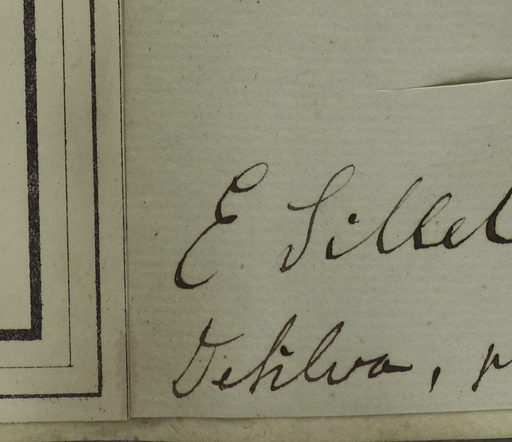 E Sillel
Desilva,